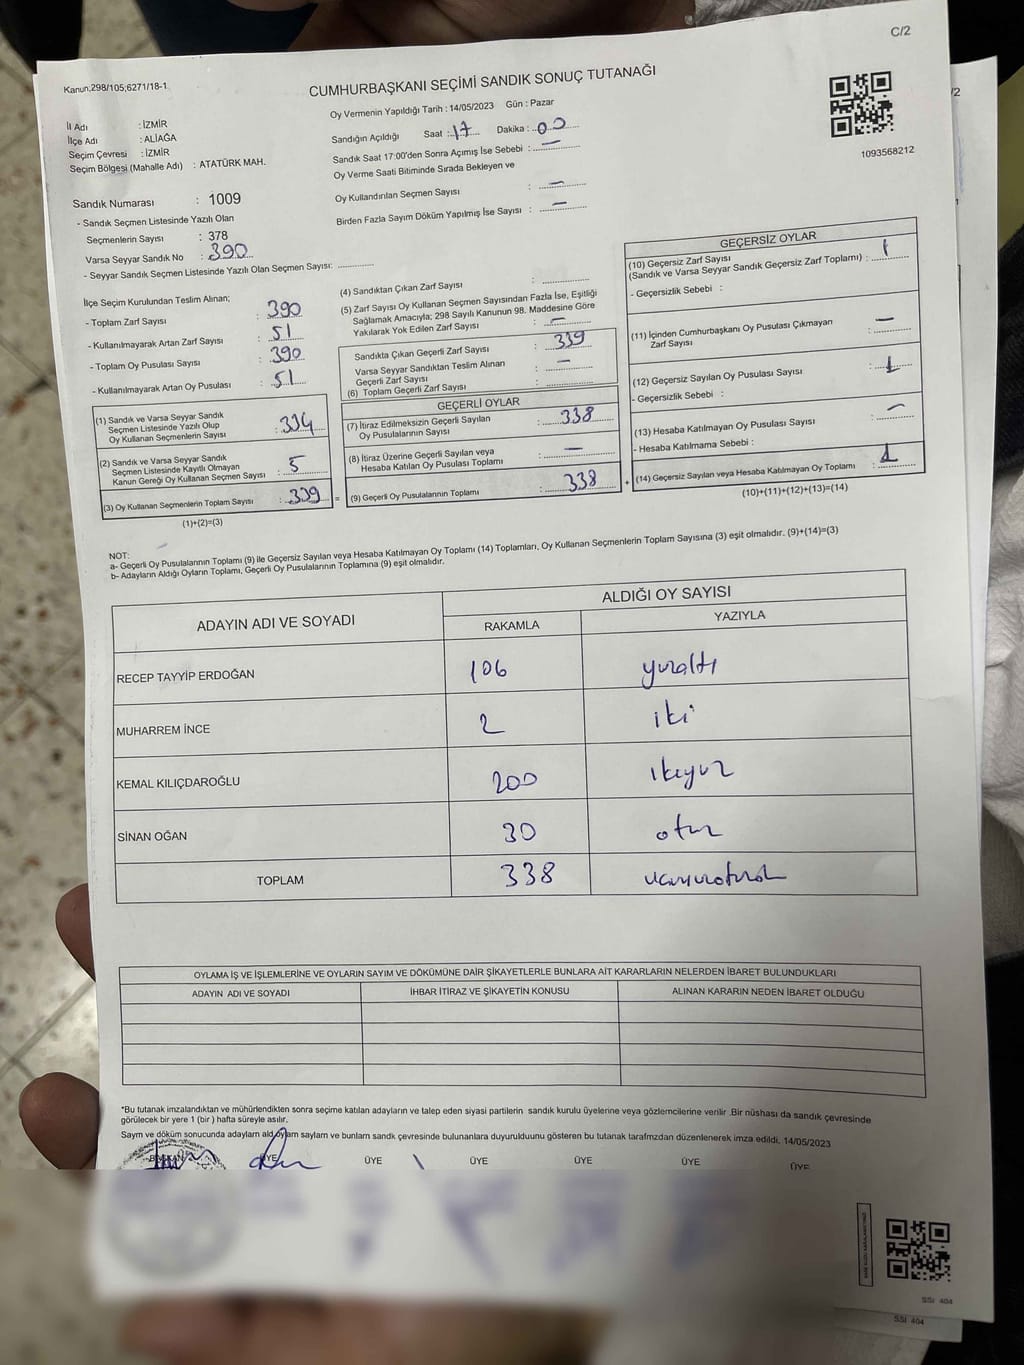 C/2
Kanun:298/105;6271/18-1
CUMHURBAŞKANI SEÇİMİ SANDIK SONUÇ TUTANAĞI
Oy Vermenin Yapıldığı Tarih : 14/05/2023 Gün : Pazar
İl Adı : İZMİR
İlçe Adı : ALİAĞA
Seçim Çevresi : İZMİR
Seçim Bölgesi (Mahalle Adı) : ATATÜRK MAH.
Sandığın Açıldığı Saat : 17 Dakika : 00
Sandık Saat 17:00'den Sonra Açımış İse Sebebi : —
Oy Verme Saati Bitiminde Sırada Bekleyen ve
Oy Kullandırılan Seçmen Sayısı : —
Birden Fazla Sayım Döküm Yapılmış İse Sayısı : —
1093568212
Sandık Numarası : 1009
- Sandık Seçmen Listesinde Yazılı Olan
Seçmenlerin Sayısı : 378
Varsa Seyyar Sandık No : 390
- Seyyar Sandık Seçmen Listesinde Yazılı Olan Seçmen Sayısı:
İlçe Seçim Kurulundan Teslim Alınan;
- Toplam Zarf Sayısı : 390
- Kullanılmayarak Artan Zarf Sayısı : 51
- Toplam Oy Pusulası Sayısı : 390
- Kullanılmayarak Artan Oy Pusulası : 51
(1) Sandık ve Varsa Seyyar Sandık
Seçmen Listesinde Yazılı Olup
Oy Kullanan Seçmenlerin Sayısı : 334
(2) Sandık ve Varsa Seyyar Sandık
Seçmen Listesinde Kayıtlı Olmayan
Kanun Gereği Oy Kullanan Seçmen Sayısı : 5
(3) Oy Kullanan Seçmenlerin Toplam Sayısı : 339 =
(1)+(2)=(3)
(4) Sandıktan Çıkan Zarf Sayısı :
(5) Zarf Sayısı Oy Kullanan Seçmen Sayısından Fazla İse, Eşitliği
Sağlamak Amacıyla; 298 Sayılı Kanunun 98. Maddesine Göre
Yakılarak Yok Edilen Zarf Sayısı : —
Sandıkta Çıkan Geçerli Zarf Sayısı : 339
Varsa Seyyar Sandıktan Teslim Alınan
Geçerli Zarf Sayısı : —
(6) Toplam Geçerli Zarf Sayısı :
GEÇERLİ OYLAR
(7) İtiraz Edilmeksizin Geçerli Sayılan
Oy Pusulalarının Sayısı : 338
(8) İtiraz Üzerine Geçerli Sayılan veya
Hesaba Katılan Oy Pusulası Toplamı : —
(9) Geçerli Oy Pusulalarının Toplamı : 338 +
GEÇERSİZ OYLAR
(10) Geçersiz Zarf Sayısı
(Sandık ve Varsa Seyyar Sandık Geçersiz Zarf Toplamı) : 1
- Geçersizlik Sebebi :
(11) İçinden Cumhurbaşkanı Oy Pusulası Çıkmayan
Zarf Sayısı : —
(12) Geçersiz Sayılan Oy Pusulası Sayısı : 1
- Geçersizlik Sebebi :
(13) Hesaba Katılmayan Oy Pusulası Sayısı : —
- Hesaba Katılmama Sebebi :
(14) Geçersiz Sayılan veya Hesaba Katılmayan Oy Toplamı : 1
(10)+(11)+(12)+(13)=(14)
NOT:
a- Geçerli Oy Pusulalarının Toplamı (9) ile Geçersiz Sayılan veya Hesaba Katılmayan Oy Toplamı (14) Toplamları, Oy Kullanan Seçmenlerin Toplam Sayısına (3) eşit olmalıdır. (9)+(14)=(3)
b- Adayların Aldığı Oyların Toplamı, Geçerli Oy Pusulalarının Toplamına (9) eşit olmalıdır.
ADAYIN ADI VE SOYADI ALDIĞI OY SAYISI
RAKAMLA YAZIYLA
RECEP TAYYİP ERDOĞAN 106 yüzaltı
MUHARREM İNCE 2 iki
KEMAL KILIÇDAROĞLU 200 ikiyüz
SİNAN OĞAN 30 otuz
TOPLAM 338
OYLAMA İŞ VE İŞLEMLERİNE VE OYLARIN SAYIM VE DÖKÜMÜNE DAİR ŞİKAYETLERLE BUNLARA AİT KARARLARIN NELERDEN İBARET BULUNDUKLARI
ADAYIN ADI VE SOYADI İHBAR İTİRAZ VE ŞİKAYETİN KONUSU ALINAN KARARIN NEDEN İBARET OLDUĞU
*Bu tutanak imzalandıktan ve mühürlendikten sonra seçime katılan adayların ve talep eden siyasi partilerin sandık kurulu üyelerine veya gözlemcilerine verilir .Bir nüshası da sandık çevresinde
görülecek bir yere 1 (bir ) hafta süreyle asılır.
Sayım ve döküm sonucunda adayların ald oyların sayıları ve bunların sandık çevresinde bulunanlara duyurulduunu gösteren bu tutanak tarafımzdan düzenlenerek imza edildi. 14/05/2023
BAŞKAN ÜYE ÜYE ÜYE ÜYE ÜYE ÜYE
SSI 404
SSI 404